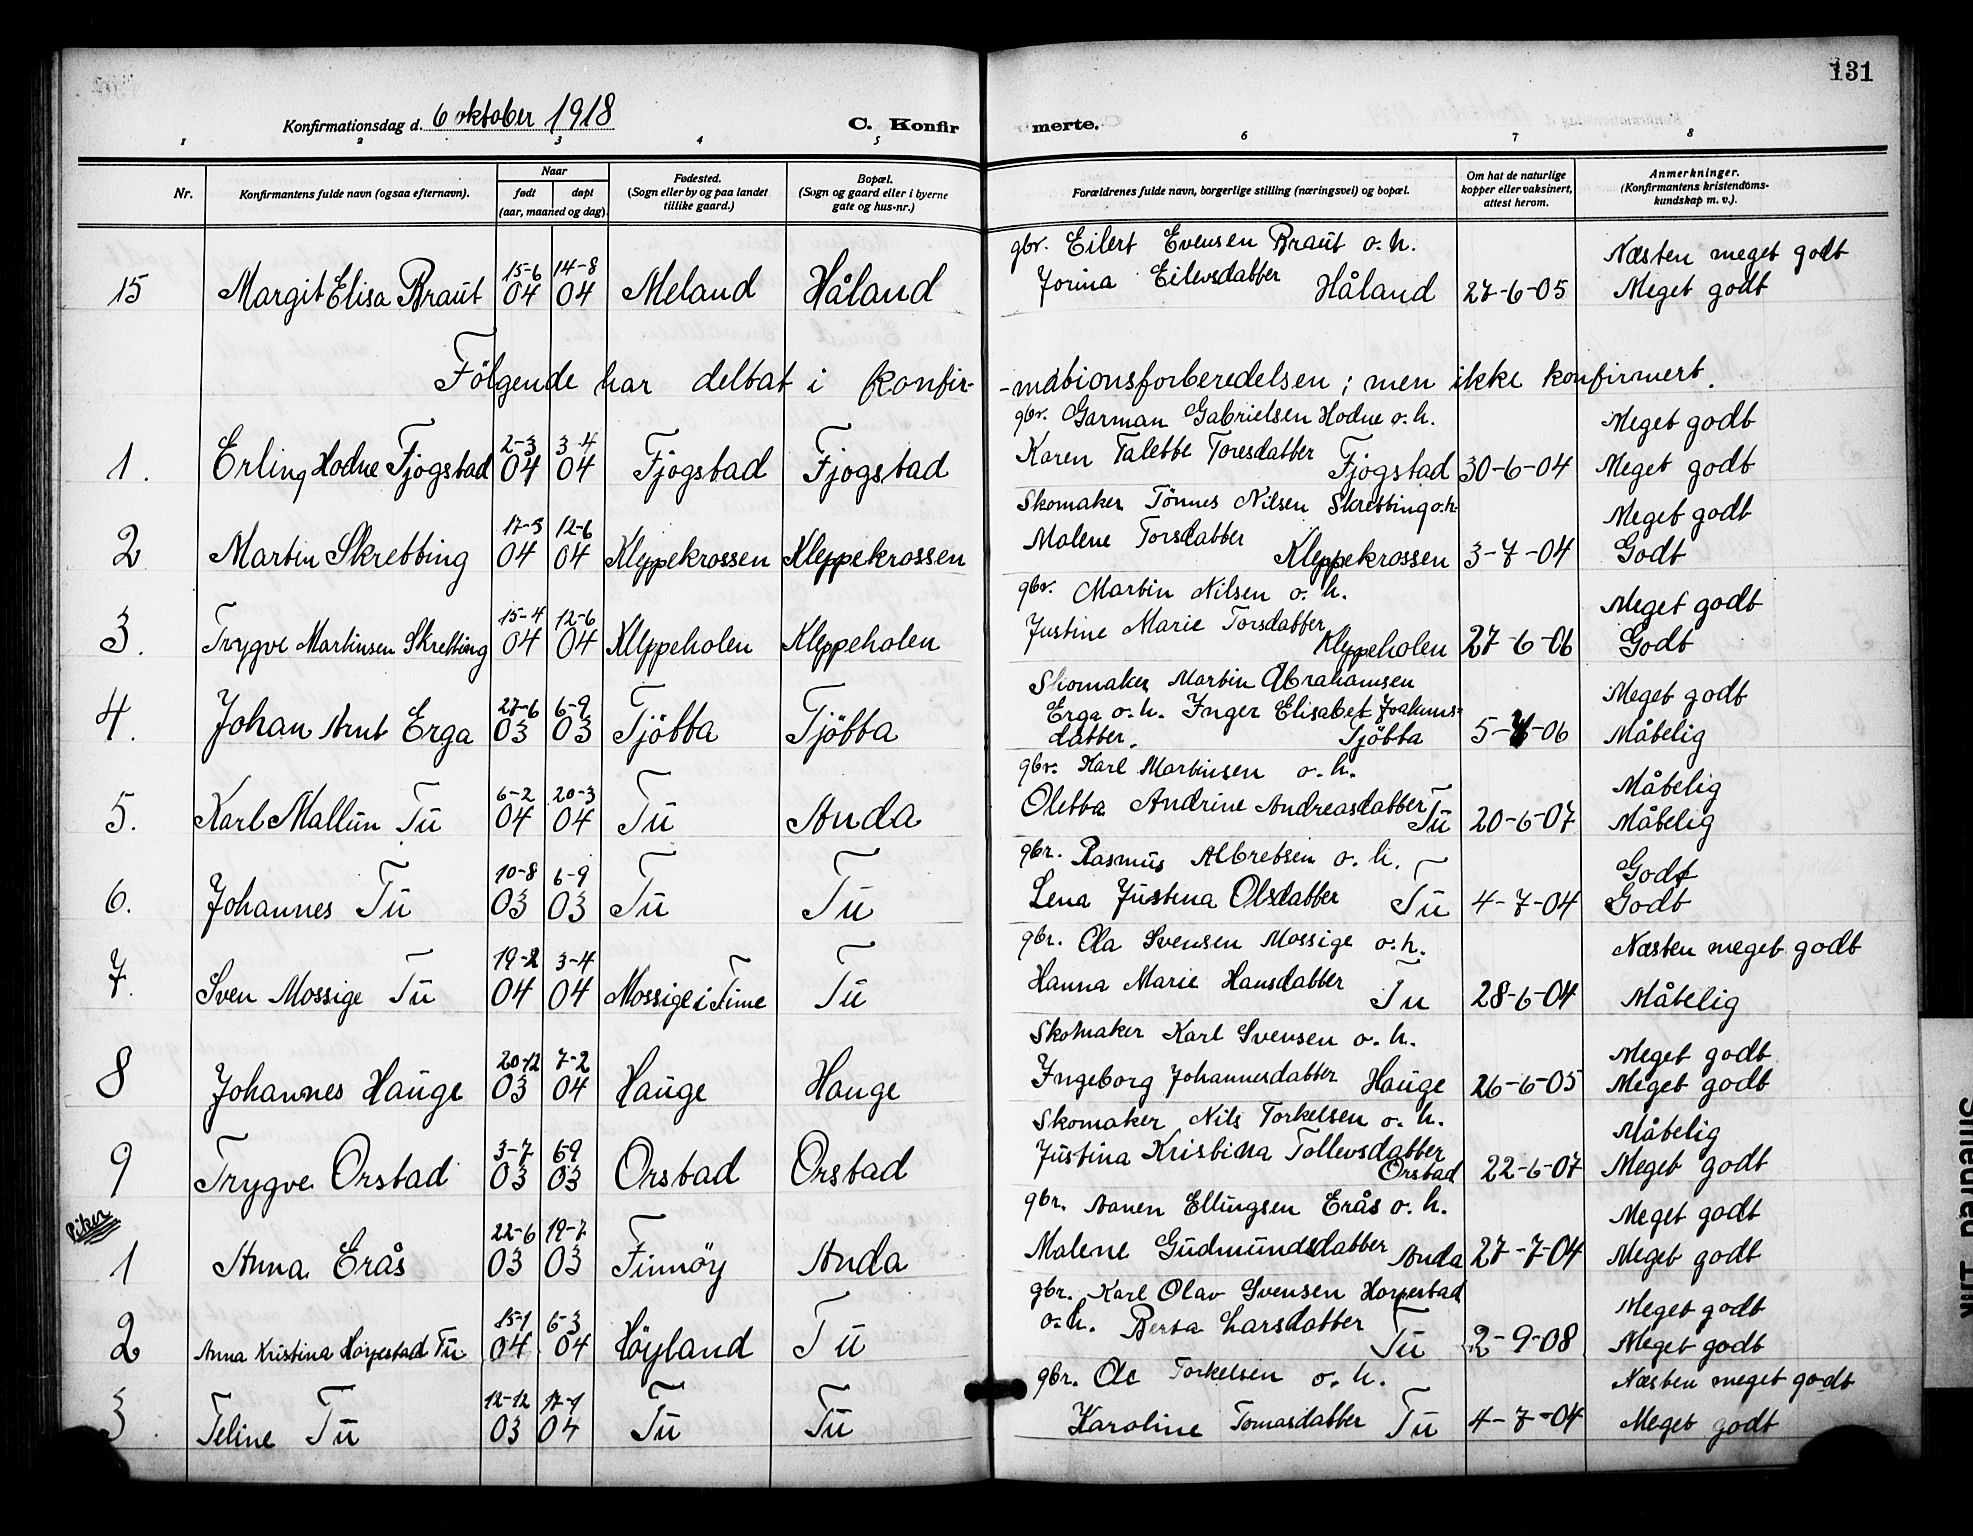 131
Konfirmationsdag d. 6 oktober 1918 C. Konfirmerte.
1 2 3 4 5 6 7 8
Nr. Konfirmantens fulde navn (ogsaa efternavn). Naar født døpt (aar, maaned og dag) Fødested. (Sogn eller by og paa landet tillike gaard.) Bopæl. (Sogn og gaard eller i byerne gate og hus-nr.) Forældrenes fulde navn, borgerlige stilling (næringsvei) og bopæl. Om hat de naturlige kopper eller vaksinert, attest herom. Anmerkninger. (Konfirmantens kristendomskundskap m. v.).
gbr. Eilert Evensen Braut o. h. Næsten meget godt
15 Margit Elisa Braut 15-6 04 14-8 04 Meland Håland Jorina Eilevsdatter Håland 27-6-05 Meget godt
Følgende har deltat i konfir- -mationsforberedelsen ; men ikke konfirmert.
gbr. Garman Gabrielsen Hodne o. h. Meget godt
1. Erling Hodne Fjogstad 2-3 04 3-4 04 Fjogstad Fjogstad Karen Talette Toresdatter Fjogstad 30-6-04 Meget godt
Skomaker Tönnes Nilsen Skretting o.h. Meget godt
2 Martin Skretting 17-5 04 12-6 04 Kleppekrossen Kleppekrossen Malene Torsdatter Kleppekrossen 3-7-04 Godt
gbr. Martin Nilsen o. h. Meget godt
3. Trygve Martinsen Skretting 15-4 04 12-6 04 Kleppeholen Kleppeholen Justine Marie Torsdatter Kleppeholen 27-6-06 Godt
Skomaker Martin Abrahamsen Meget godt
Erga o. h. Inger Elisabet Joakims-
4. Johan Arnt Erga 27-6 03 6-9 03 Tjötta Tjötta datter. Tjötta 5- -06 Måtelig
gbr. Karl Martinsen o. h. Måtelig
5. Karl Mallun Tu 6-2 04 20-3 04 Tu Anda Oletta Andrine Andreasdatter Tu 20-6-07 Måtelig
gbr. Rasmus Albretsen o. h. Godt
6. Johannes Tu 10-8 03 6-9 03 Tu Tu Lena Justina Olsdatter Tu 4-7-04 Godt
gbr. Ola Svensen Mossige o. h. Næsten meget godt
7. Sven Mossige Tu 19-2 04 3-4 04 Mossige i Time Tu Hanna Marie Hansdatter Tu 28-6-04 Måtelig
Skomaker Karl Svensen o. h. Meget godt
8 Johannes Hauge 20-12 03 7-2 04 Hauge Hauge Ingeborg Johannesdatter Hauge 26-6-05 Meget godt
Skomaker Nils Torkelsen o. h. Måtelig
9 Trygve Orstad 3-7 03 6-9 03 Orstad Orstad Justina Kristina Tollevsdatter Orstad 22-6-07 Meget godt
Piker
gbr. Aanen Ellingsen Erås o. h. Meget godt
1 Anna Erås 22-6 03 19-7 03 Finnöy Anda Malene Gudmundsdatter Anda 27-7-04 Meget godt
gbr. Karl Olav Svensen Horpestad Meget godt
2 Anna Kristina Horpestad Tu 15-1 04 6-3 04 Höyland Tu o. h. Berta Larsdatter Tu 2-9-08 Meget godt
gbr. Ole Torkelsen o. h. Næsten meget godt
3 Teline Tu 12-12 03 17-1 04 Tu Tu Karoline Tomasdatter Tu 4-7-04 Meget godt